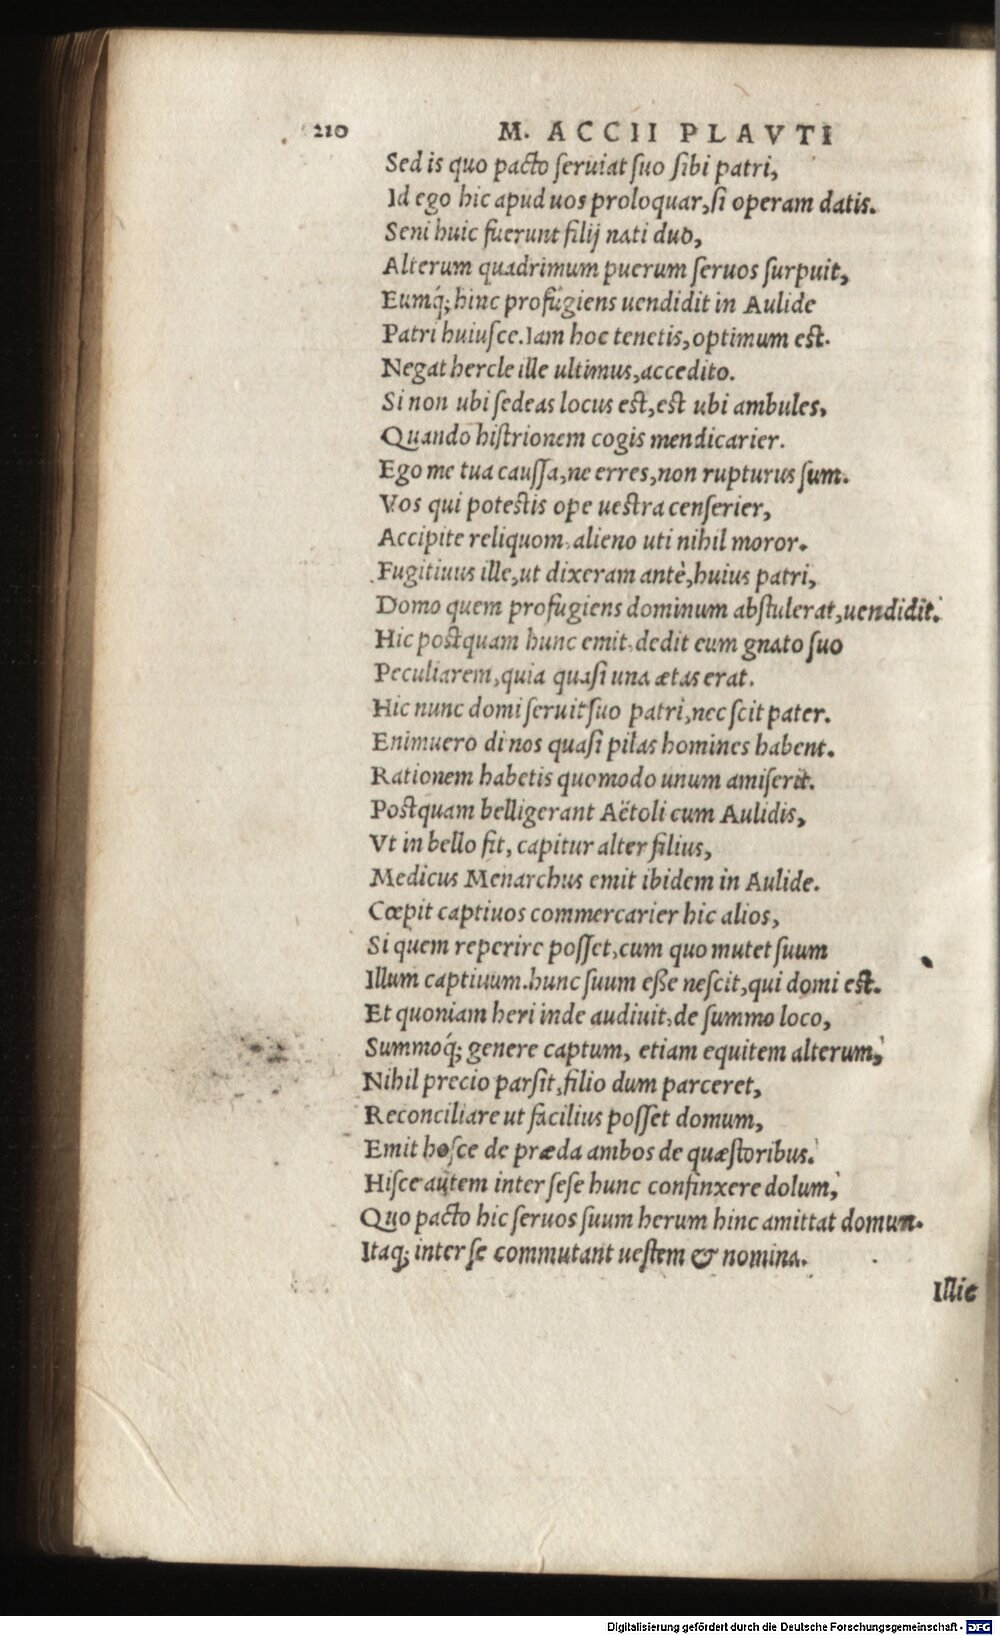 210 M. ACCII PLAVTI
Sed is quo pacto ſeruiat ſuo ſibi patri,
Id ego hic apud uos proloquar, ſi operam datis.
Seni huic fuerunt filij nati duo,
Alterum quadrimum puerum ſeruos ſurpuit,
Eumq́; hinc profugiens uendidit in Aulide
Patri huiuſce. Iam hoc tenetis, optimum eſt.
Negat hercle ille ultimus, accedito.
Si non ubi ſedeas locus eſt, eſt ubi ambules,
Quando hiſtrionem cogis mendicarier.
Ego me tua cauſſa, ne erres, non rupturus ſum.
Vos qui poteſtis ope ueſtra cenſerier,
Accipite reliquom, alieno uti nihil moror.
Fugitiuus ille, ut dixeram antè, huius patri,
Domo quem profugiens dominum abſtulerat, uendidit.
Hic poſtquam hunc emit, dedit eum gnato ſuo
Peculiarem, quia quaſi una ætas erat.
Hic nunc domi ſeruit ſuo patri, nec ſcit pater.
Enimuero di nos quaſi pilas homines habent.
Rationem habetis quomodo unum amiſerit.
Poſtquam belligerant Aëtoli cum Aulidis,
Vt in bello fit, capitur alter filius,
Medicus Menarchus emit ibidem in Aulide.
Cœpit captiuos commercarier hic alios,
Si quem reperire poſſet, cum quo mutet ſuum
Illum captiuum. hunc ſuum eſſe neſcit, qui domi eſt.
Et quoniam heri inde audiuit, de ſummo loco,
Summoq́; genere captum, etiam equitem alterum,
Nihil precio parſit, filio dum parceret,
Reconciliare ut facilius poſſet domum,
Emit hoſce de præda ambos de quæſtoribus.
Hiſce autem inter ſeſe hunc confinxere dolum,
Quo pacto hic ſeruos ſuum herum hinc amittat domum.
Itaq; inter ſe commutant ueſtem & nomina.
Illic
Digitalisierung gefördert durch die Deutsche Forschungsgemeinschaft - DFG